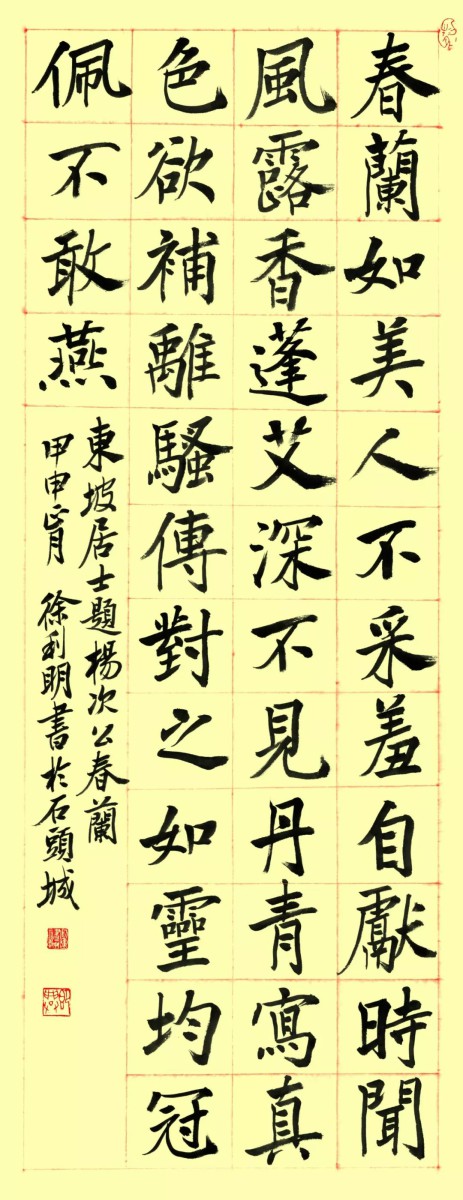 春蘭如美人不采羞自獻時聞
風露香蓬艾深不見丹青寫真
色欲補離騷傳對之如靈均冠
佩不敢燕
東坡居士題楊次公春蘭
甲申六月徐利明書於石頭城